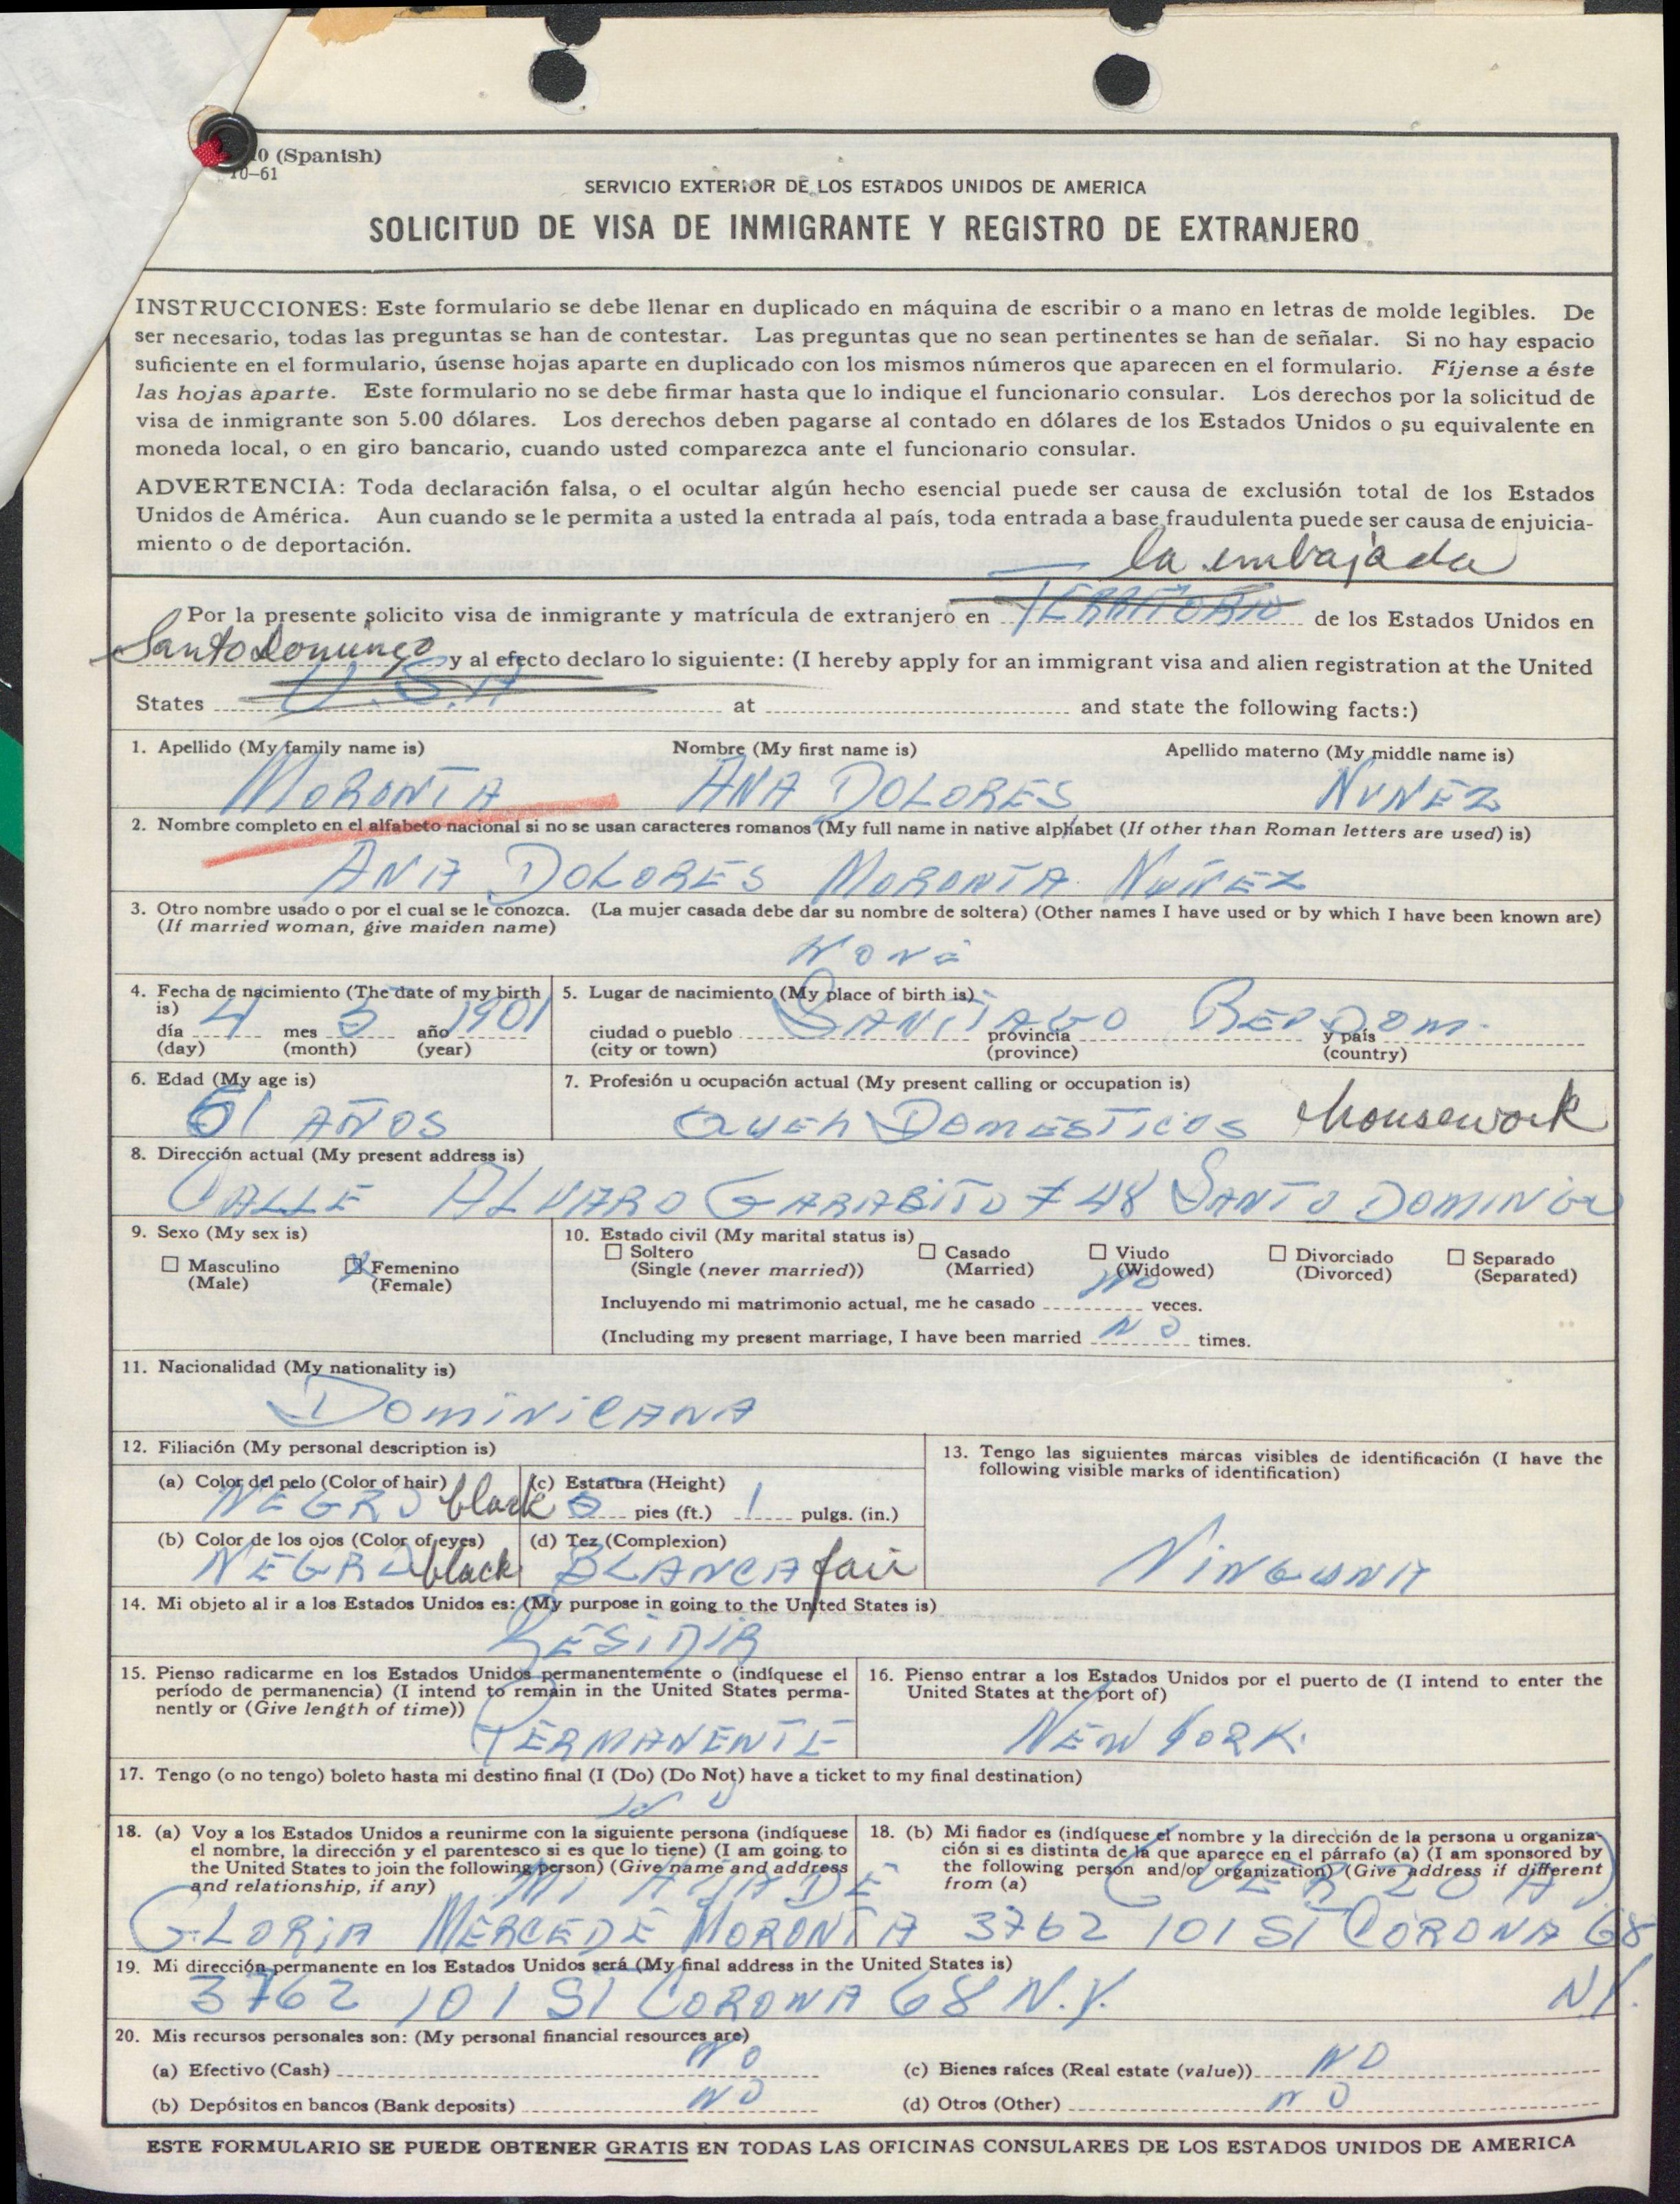 10 (Spanish)
10-61
SERVICIO EXTERIOR DE LOS ESTADOS UNIDOS DE AMERICA
SOLICITUD DE VISA DE INMIGRANTE Y REGISTRO DE EXTRANJERO
INSTRUCCIONES: Este formulario se debe llenar en duplicado en máquina de escribir o a mano en letras de molde legibles. De
ser necesario, todas las preguntas se han de contestar. Las preguntas que no sean pertinentes se han de señalar. Si no hay espacio
suficiente en el formulario, úsense hojas aparte en duplicado con los mismos números que aparecen en el formulario. Fíjense a éste
las hojas aparte. Este formulario no se debe firmar hasta que lo indique el funcionario consular. Los derechos por la solicitud de
visa de inmigrante son 5.00 dólares. Los derechos deben pagarse al contado en dólares de los Estados Unidos o su equivalente en
moneda local, o en giro bancario, cuando usted comparezca ante el funcionario consular.
ADVERTENCIA: Toda declaración falsa, o el ocultar algún hecho esencial puede ser causa de exclusión total de los Estados
Unidos de América. Aun cuando se le permita a usted la entrada al país, toda entrada a base fraudulenta puede ser causa de enjuicia-
miento o de deportación.
la embajada
Por la presente solicito visa de inmigrante y matrícula de extranjero en TERRITORIO de los Estados Unidos en
Santo Domingo y al efecto declaro lo siguiente: (I hereby apply for an immigrant visa and alien registration at the United
States U.S.A at and state the following facts:)
1. Apellido (My family name is) Nombre (My first name is) Apellido materno (My middle name is)
MORONTA ANA DOLORES NUNEZ
2. Nombre completo en el alfabeto nacional si no se usan caracteres romanos (My full name in native alphabet (If other than Roman letters are used) is)
ANA DOLORES MORONTA NUÑEZ
3. Otro nombre usado o por el cual se le conozca. (La mujer casada debe dar su nombre de soltera) (Other names I have used or by which I have been known are)
(If married woman, give maiden name)
NONE
4. Fecha de nacimiento (The date of my birth is) 5. Lugar de nacimiento (My place of birth is)
día 4 mes 5 año 1901 ciudad o pueblo SANTIAGO provincia REP DOM. y país
(day) (month) (year) (city or town) (province) (country)
6. Edad (My age is) 7. Profesión u ocupación actual (My present calling or occupation is)
61 AÑOS QUEH DOMESTICOS housework
8. Dirección actual (My present address is)
CALLE ALVARO GARABITO # 48 SANTO DOMINGO
9. Sexo (My sex is) 10. Estado civil (My marital status is)
Masculino X Femenino Soltero Casado Viudo Divorciado Separado
(Male) (Female) (Single (never married)) (Married) (Widowed) (Divorced) (Separated)
Incluyendo mi matrimonio actual, me he casado NO veces.
(Including my present marriage, I have been married NO times.
11. Nacionalidad (My nationality is)
DOMINICANA
12. Filiación (My personal description is) 13. Tengo las siguientes marcas visibles de identificación (I have the
following visible marks of identification)
(a) Color del pelo (Color of hair) (c) Estatura (Height)
NEGRO black pies (ft.) 1 pulgs. (in.)
(b) Color de los ojos (Color of eyes) (d) Tez (Complexion)
NEGRO black BLANCA fair NINGUNA
14. Mi objeto al ir a los Estados Unidos es: (My purpose in going to the United States is)
RESIDIR
15. Pienso radicarme en los Estados Unidos permanentemente o (indíquese el
período de permanencia) (I intend to remain in the United States perma-
nently or (Give length of time))
PERMANENTE
16. Pienso entrar a los Estados Unidos por el puerto de (I intend to enter the
United States at the port of)
NEW YORK.
17. Tengo (o no tengo) boleto hasta mi destino final (I (Do) (Do Not) have a ticket to my final destination)
NO
18. (a) Voy a los Estados Unidos a reunirme con la siguiente persona (indíquese
el nombre, la dirección y el parentesco si es que lo tiene) (I am going to
the United States to join the following person) (Give name and address
and relationship, if any)
18. (b) Mi fiador es (indíquese el nombre y la dirección de la persona u organiza-
ción si es distinta de la que aparece en el párrafo (a) (I am sponsored by
the following person and/or organization) (Give address if different
from (a)
GLORIA MERCEDE MORONTA 3762 101 ST CORONA 68
N.Y.
19. Mi dirección permanente en los Estados Unidos será (My final address in the United States is)
3762 101 ST CORONA 68 N.Y.
20. Mis recursos personales son: (My personal financial resources are)
(a) Efectivo (Cash) NO (c) Bienes raíces (Real estate (value)) NO
(b) Depósitos en bancos (Bank deposits) NO (d) Otros (Other) NO
ESTE FORMULARIO SE PUEDE OBTENER GRATIS EN TODAS LAS OFICINAS CONSULARES DE LOS ESTADOS UNIDOS DE AMERICA